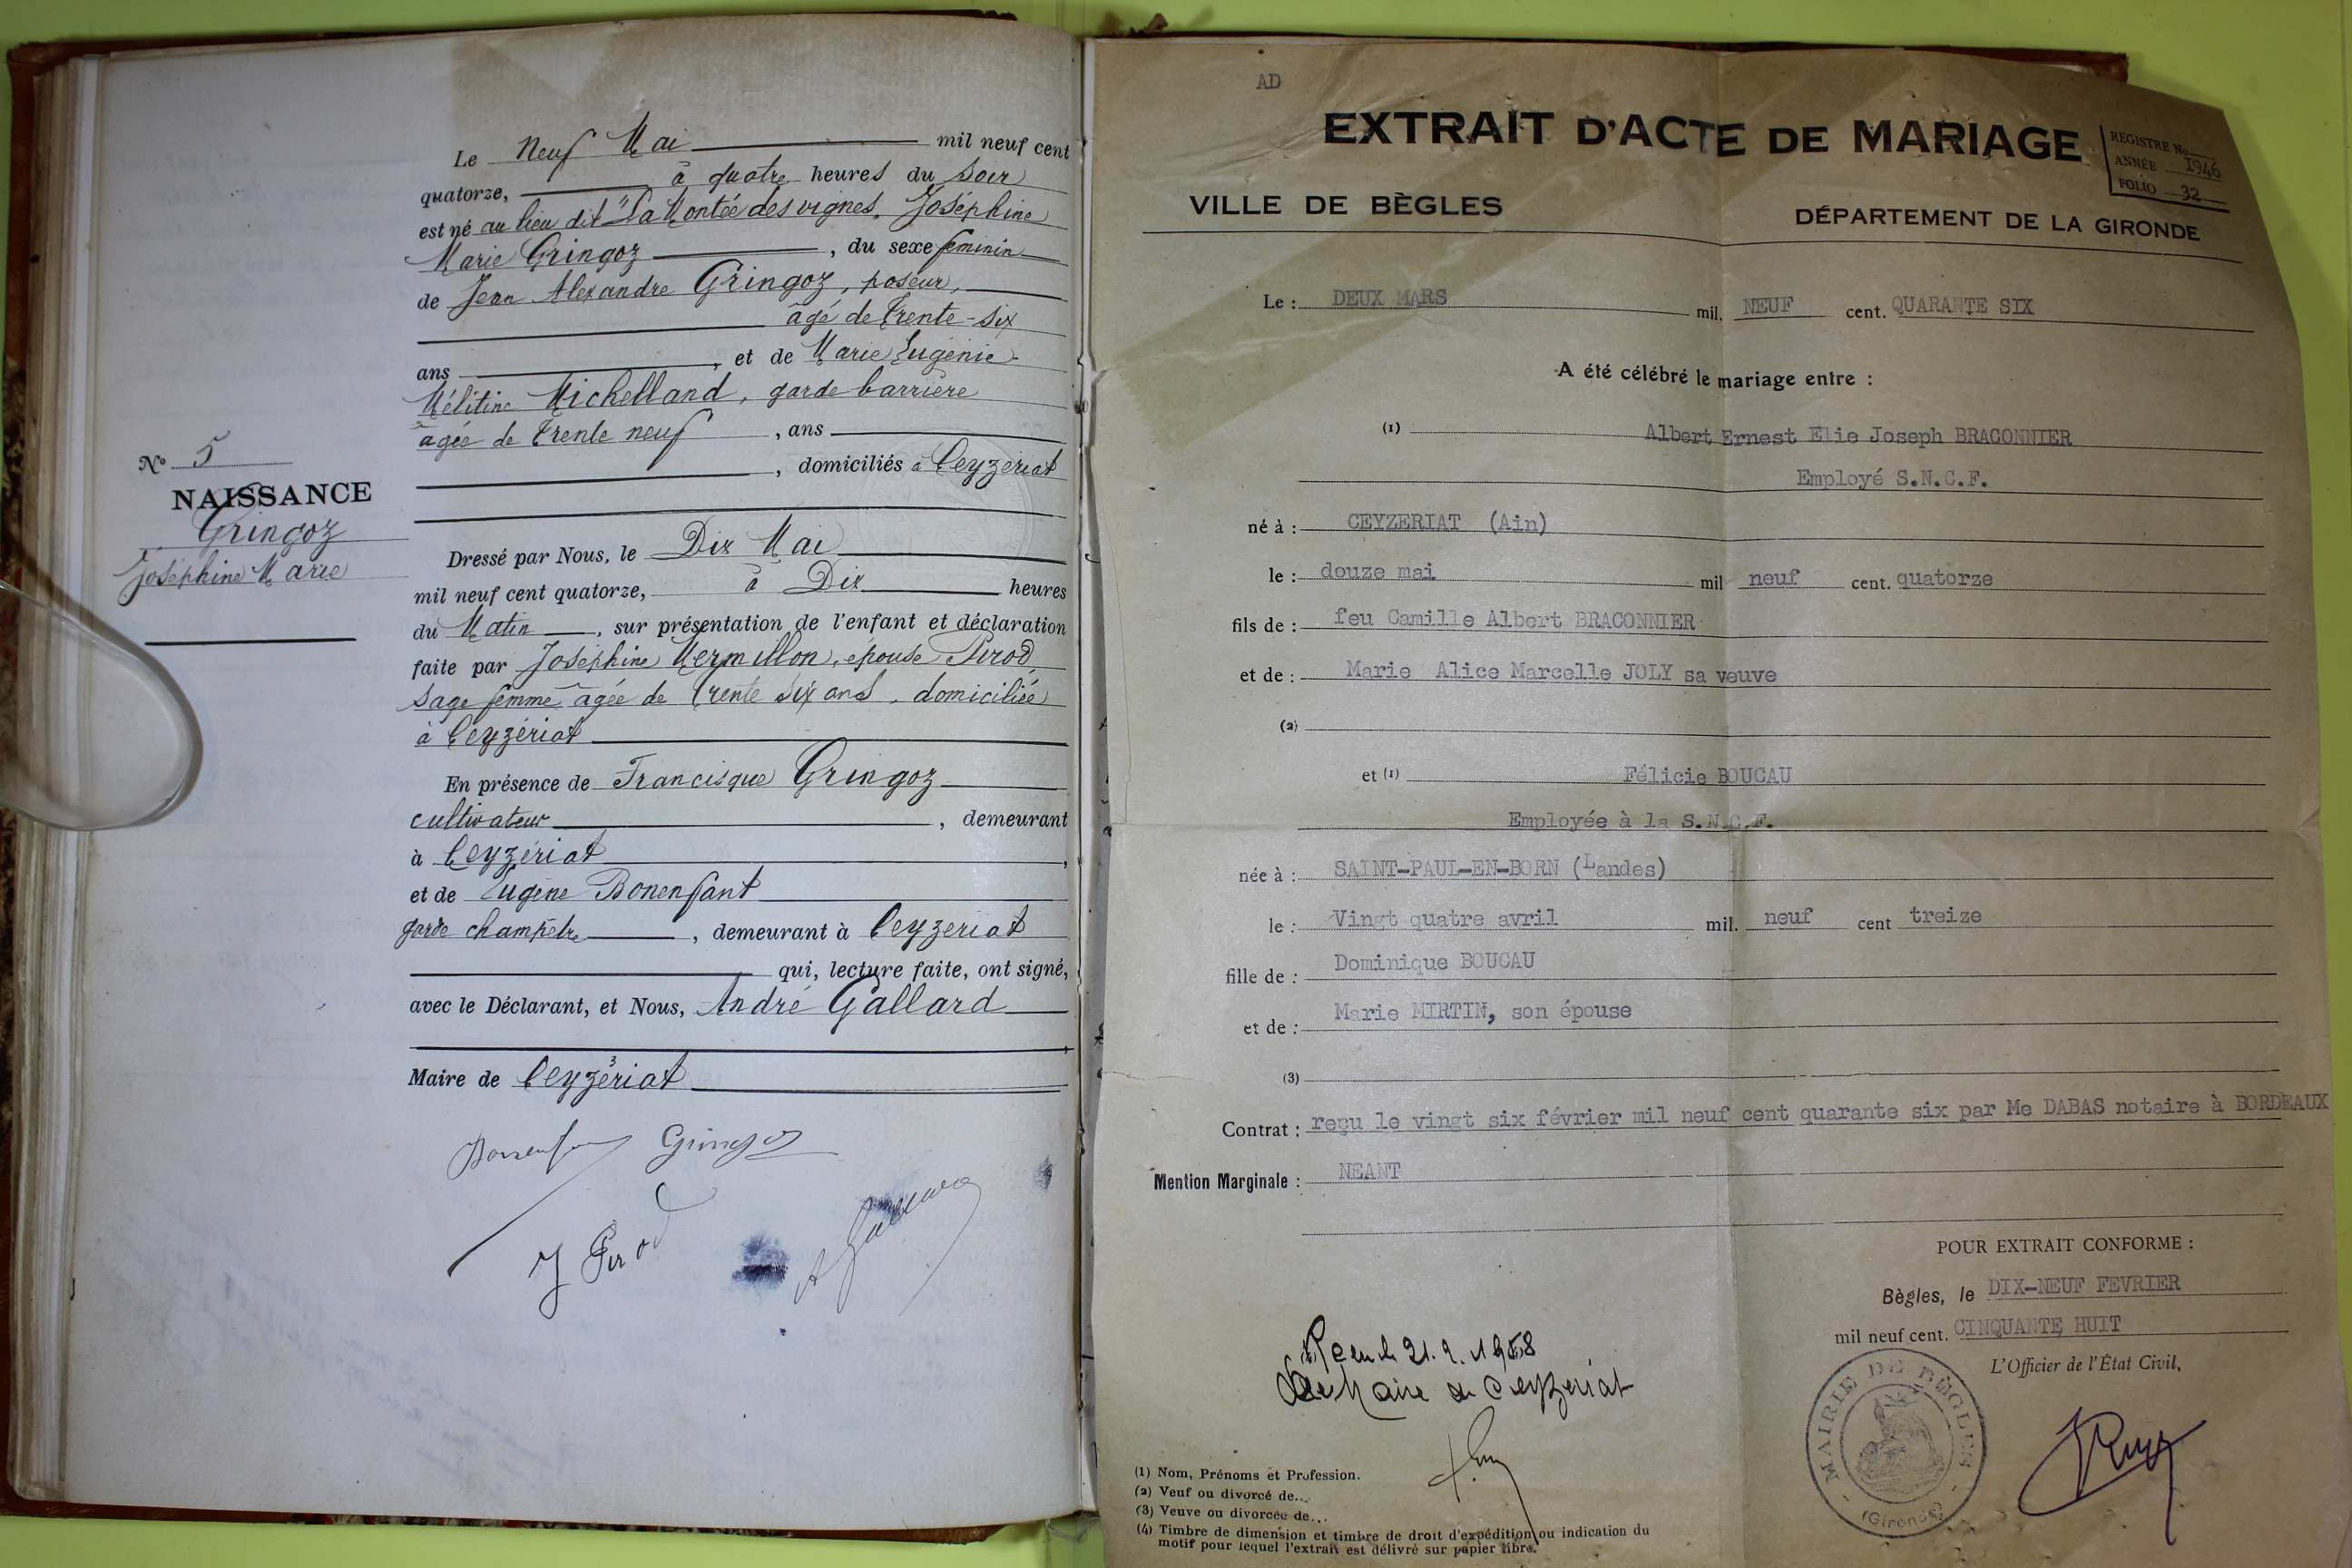 N° 5
NAISSANCE
Gringoz
Joséphine Marie
Le Neuf Mai mil neuf cent
quatorze, à quatre heures du soir
est né au lieu dit "La Montée des vignes, Joséphine
Marie Gringoz, du sexe féminin
de Jean Alexandre Gringoz, poseur,
âgé de trente-six
ans, et de Marie Eugénie
Mélitine Michelland, garde-barrière
âgée de trente neuf, ans
, domiciliés à Ceyzériat
Dressé par Nous, le Dix Mai
mil neuf cent quatorze, à Dix heures
du Matin, sur présentation de l'enfant et déclaration
faite par Joséphine Mermillon, épouse Pirod,
sage femme âgée de trente six ans, domiciliée
à Ceyzériat
En présence de Francisque Gringoz
cultivateur, demeurant
à Ceyzériat,
et de Eugène Bonenfant
garde champêtre, demeurant à Ceyzériat
qui, lecture faite, ont signé,
avec le Déclarant, et Nous, André Gallard
,
Maire de Ceyzériat
Bonenfant Gringoz
J Pirod
AD
EXTRAIT D'ACTE DE MARIAGE
REGISTRE No
ANNÉE 1946
FOLIO 32
VILLE DE BÈGLES
DÉPARTEMENT DE LA GIRONDE
Le : DEUX MARS mil. NEUF cent. QUARANTE SIX
A été célébré le mariage entre :
(1) Albert Ernest Elie Joseph BRACONNIER
Employé S.N.C.F.
né à : CEYZERIAT (Ain)
le : douze mai mil neuf cent. quatorze
fils de : feu Camille Albert BRACONNIER
et de : Marie Alice Marcelle JOLY sa veuve
(2)
et (1) Félicie BOUCAU
Employée à la S.N.C.F.
née à : SAINT-PAUL-EN-BORN (Landes)
le : Vingt quatre avril mil. neuf cent treize
fille de : Dominique BOUCAU
et de : Marie MIRTIN, son épouse
(3)
Contrat : reçu le vingt six février mil neuf cent quarante six par Me DABAS notaire à BORDEAUX
Mention Marginale : NEANT
POUR EXTRAIT CONFORME :
Bègles, le DIX-NEUF FEVRIER
mil neuf cent. CINQUANTE HUIT
L'Officier de l'État Civil,
Reçu le 21.2.1958
Le Maire de Ceyzériat
MAIRIE DE BÈGLES
(Gironde)
(1) Nom, Prénoms et Profession.
(2) Veuf ou divorcé de...
(3) Veuve ou divorcée de...
(4) Timbre de dimension et timbre de droit d'expédition ou indication du
motif pour lequel l'extrait est délivré sur papier libre.